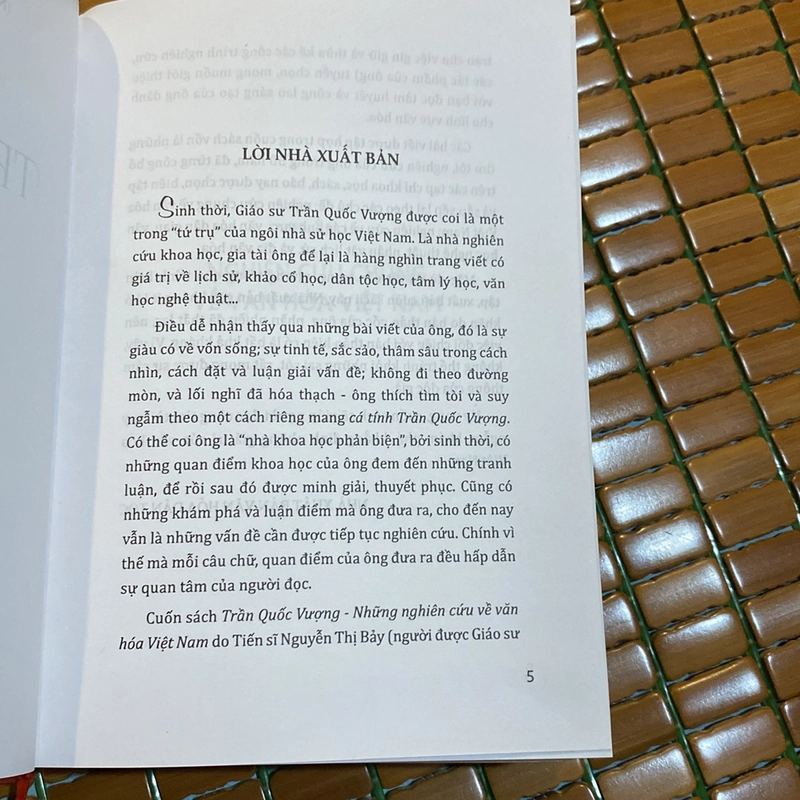 LỜI NHÀ XUẤT BẢN
Sinh thời, Giáo sư Trần Quốc Vượng được coi là một
trong “tứ trụ” của ngôi nhà sử học Việt Nam. Là nhà nghiên
cứu khoa học, gia tài ông để lại là hàng nghìn trang viết có
giá trị về lịch sử, khảo cổ học, dân tộc học, tâm lý học, văn
học nghệ thuật...
Điều dễ nhận thấy qua những bài viết của ông, đó là sự
giàu có về vốn sống; sự tinh tế, sắc sảo, thâm sâu trong cách
nhìn, cách đặt và luận giải vấn đề; không đi theo đường
mòn, và lối nghĩ đã hóa thạch - ông thích tìm tòi và suy
ngẫm theo một cách riêng mang cá tính Trần Quốc Vượng.
Có thể coi ông là “nhà khoa học phản biện”, bởi sinh thời, có
những quan điểm khoa học của ông đem đến những tranh
luận, để rồi sau đó được minh giải, thuyết phục. Cũng có
những khám phá và luận điểm mà ông đưa ra, cho đến nay
vẫn là những vấn đề cần được tiếp tục nghiên cứu. Chính vì
thế mà mỗi câu chữ, quan điểm của ông đưa ra đều hấp dẫn
sự quan tâm của người đọc.
Cuốn sách Trần Quốc Vượng - Những nghiên cứu về văn
hóa Việt Nam do Tiến sĩ Nguyễn Thị Bảy (người được Giáo sư
5